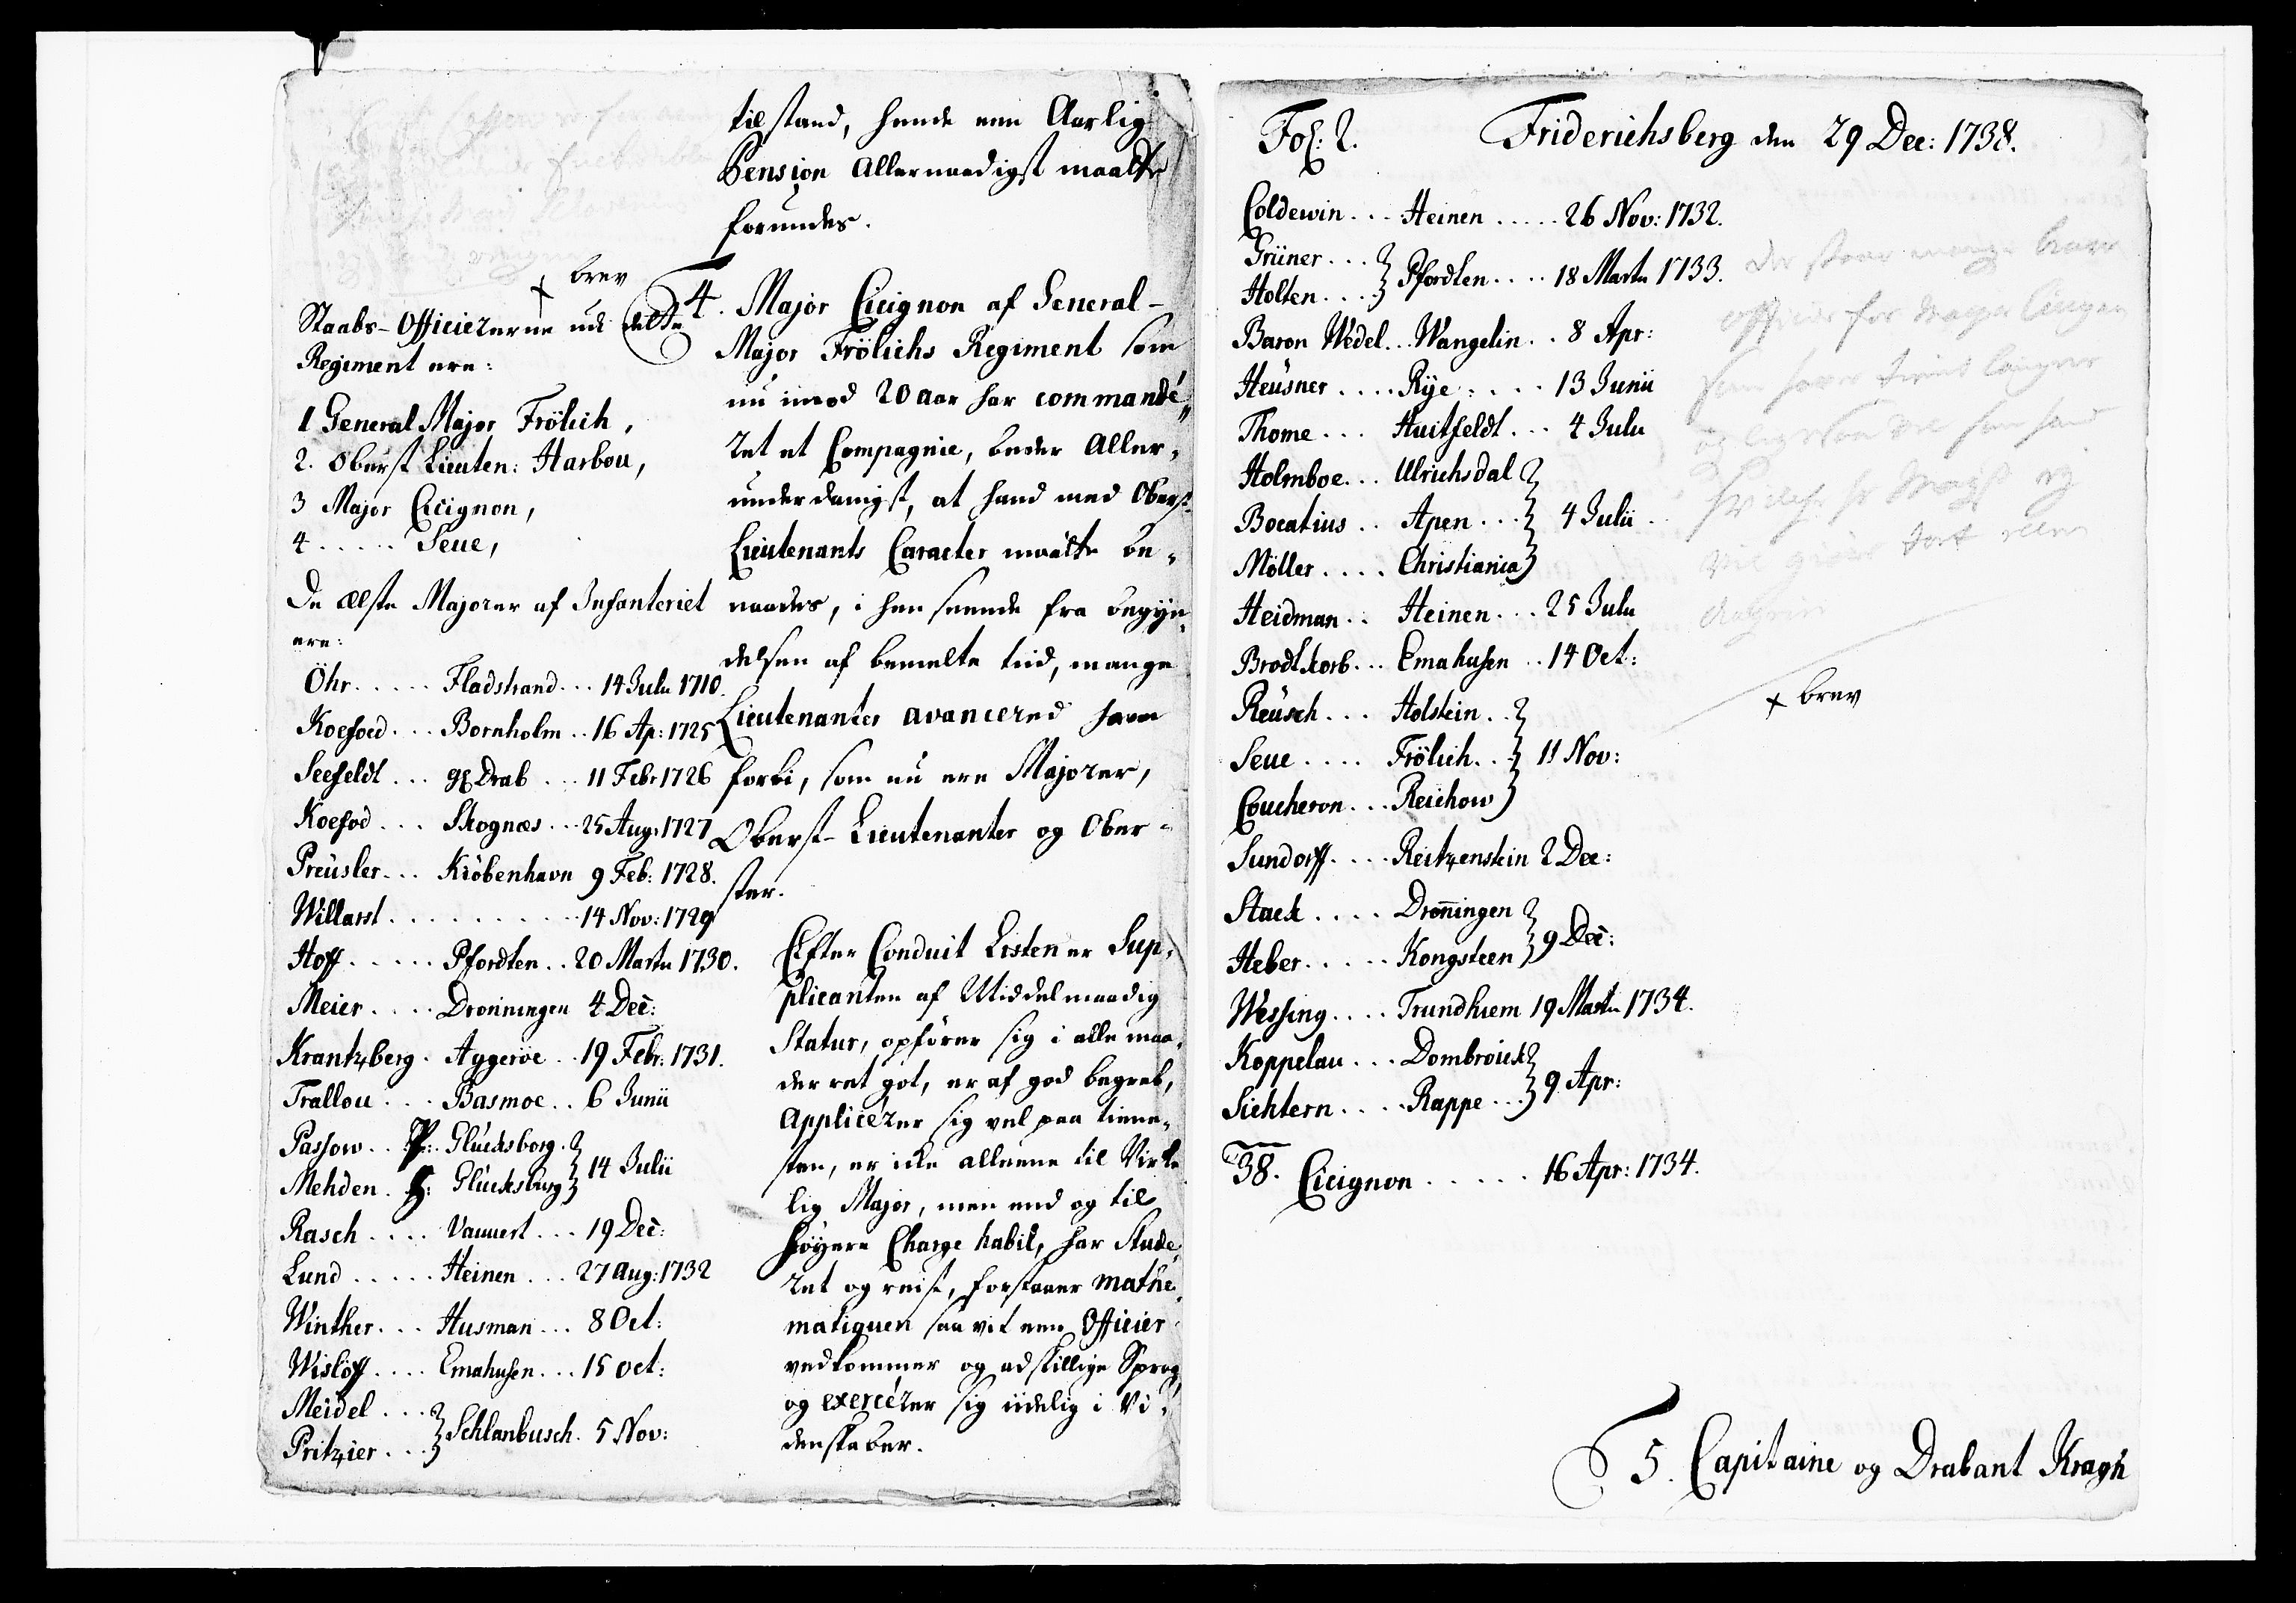 tilstand, hende een Aarlig
Pension Allernaadigst maatte
forundes.
4. Major Cicignon af General-
Major Frölichs Regiment som
nu imod 20 aar har commandé-
ret et Compagnie, beder Aller-
underdanigst, at hand med Oberst-
Lieutenants Caracter maatte be-
naades, i hen seende fra begyn-
delsen af bemelte tiid, mange
Lieutenanter avancered ham
forbi, som nu ere Majorer,
Oberst-Lieutenanter og Ober-
ster.
Efter Conduit Listen er Sup-
plicanten af Middelmaadig
Statur, opförer sig i alle maa-
der ret got, er af god begreb,
Applicérer sig vel paa tiene-
sten, er icke alleene til Virke
lig Major, men end og til
höyere Charge habil, har Stude-
ret og reist, forstaaer mathe-
matiquen saa vit een Officier
vedkommer og adskillige Sprog
og exercérer sig iidelig i Vi-
denskaber.
x brev
Staabs-Officiererne ved dette
Regiment ere:
1 General Major Frölich,
2. Oberst Lieuten: Harbou,
3 Major Cicignon,
4 ..... Seue,
De ælste Majorer af Infanteriet
ere:
Öhr ..... Fladstrand ... 14 Julii 1710.
Koefoed ... Bornholm .. 16 Ap: 1725
Seefeldt ... Drab ... 11 Febr 1726
Koefod ... Skognæs ... 25 Aug: 1727
Preüsler ... Kiöbenhavn 9 Feb: 1728.
Willarst .......... 14 Nov: 1729
Hoff ..... Pfordten .. 20 Martii 1730.
Meier .... Dronningen 4 Dec:
Krantzberg . Aggeröe .. 19 Febr: 1731.
Trallou ... Basmoe .. 6 Junii
Passow .. Glücksborg.
Mehden . Glücksburg } 14 Julii
Rasch .... Vauuert ... 19 Dec:
Lund ..... Heinen ... 27 aug: 1732
Winther ... Husman ... 8 Oct:
Wislöff .... Emahusen ... 15 oct:
Meidel ...
Pritzier ... } Schlanbusch. 5 Nov:
Fol: 2. Friderichsberg den 29 Dec: 1738.
Coldewin ... Heinen ..... 26 Nov: 1732.
Grüner ...
Holten .... } Pfordten .... 18 Martii 1733.
Baron Wedel .. Wangelin .. 8 Apr:
Heüsner .... Rÿe .... 13 Junii
Thome ... Huitfeldt ... 4 Julii
Holmboe ... Ulrichsdal
Bocatius .. Apen ... } 4 Julii
Möller .... Christiania
Heidman .. Heinen ... 25 Julii
Brodtkorb ... Emahusen .. 14 Oct:
Reüsch ... Holstein ..
Seue .... Frölich .. } 11 Nov:
Coucheron ... Reichow
Sundorff .... Reitzenstein 2 Dec:
Stack .... Dronningen
Heber ..... Kongsteen } 9 Dec:
Wessing .... Trundhiem 19 Martii 1734.
Koppelau ... Dombroick
Sichtern .... Rappe ... } 9 Apr:
38. Cicignon ..... 16 Apr: 1734.
Der staar mange
x brev
5. Capitaine og Drabant Kragh